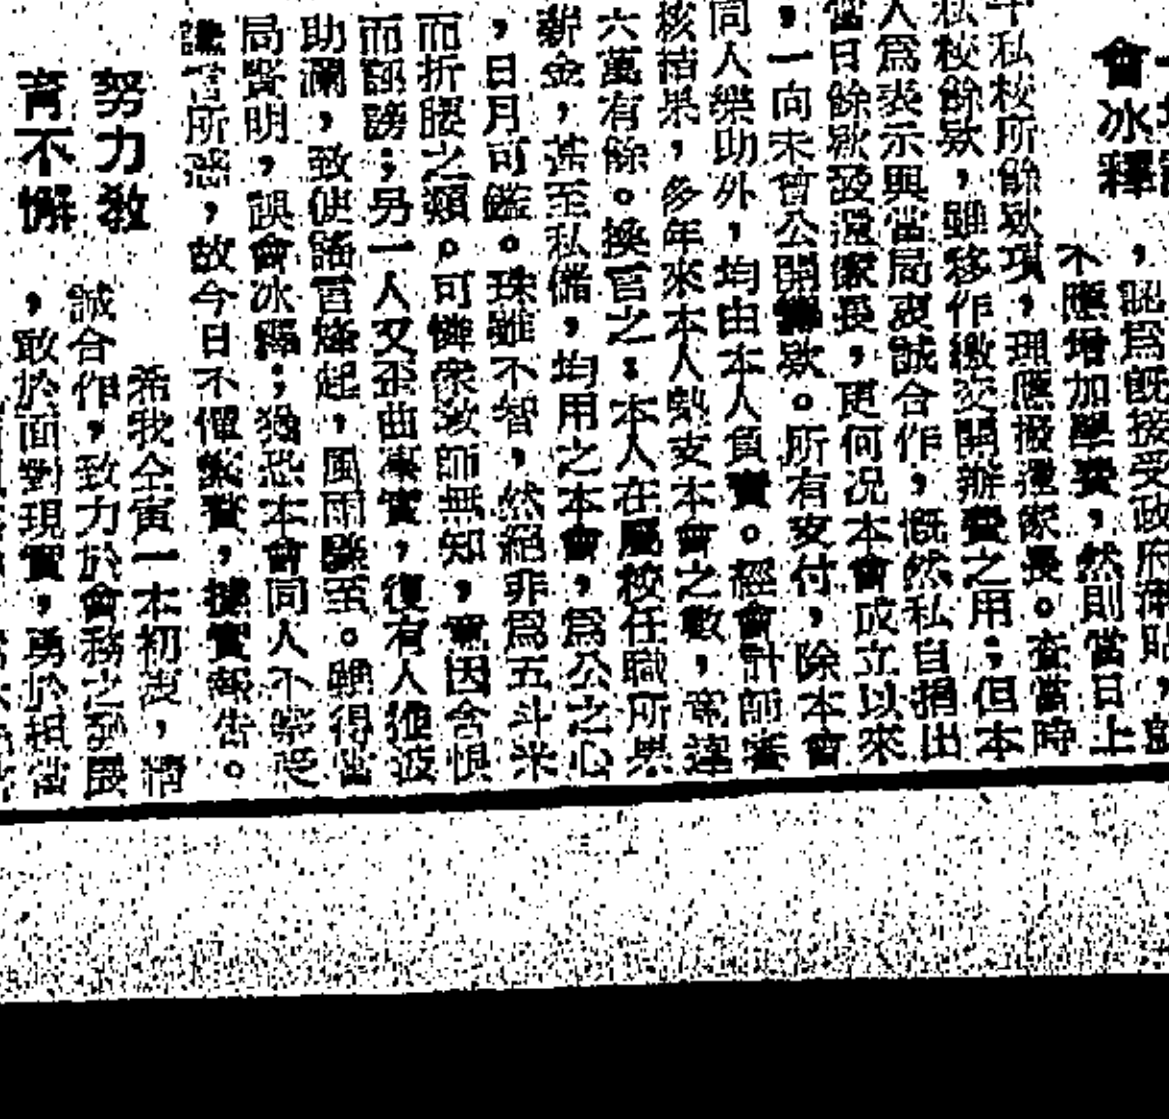 會冰釋
，認爲旣接受政府津貼，
不應增加學費，然則當日上
年私校所餘欵項，理應撥還家長。查當時
私校餘欵，雖移作繳交開辦費之用；但本
人爲表示與當局衷誠合作，慨然私自捐出
當日餘欵發還家長，更何况本會成立以來
，一向未曾公開籌欵。所有支付，除本會
同人樂助外，均由本人負責。經會計師審
核結果，多年來本人墊支本會之數，常達
六萬有餘。換言之：本人在屬校任職所得
薪金，甚至私儲，均用之本會，爲公之心
，日月可鑑。珠雖不智，然絕非爲五斗米
而折腰之類。可憐衆敎師無知，竟因含恨
而誹謗；另一人又歪曲事實，復有人推波
助瀾，致使謠言烽起，風雨驟至。雖得當
局賢明，誤會冰釋；猶恐本會同人不察受
讒言所惑，故今日不憚累贅，據實報告。
努力敎
育不懈
希我仝寅一本初衷，精
誠合作，致力於會務之發展
，敢於面對現實，勇於担當